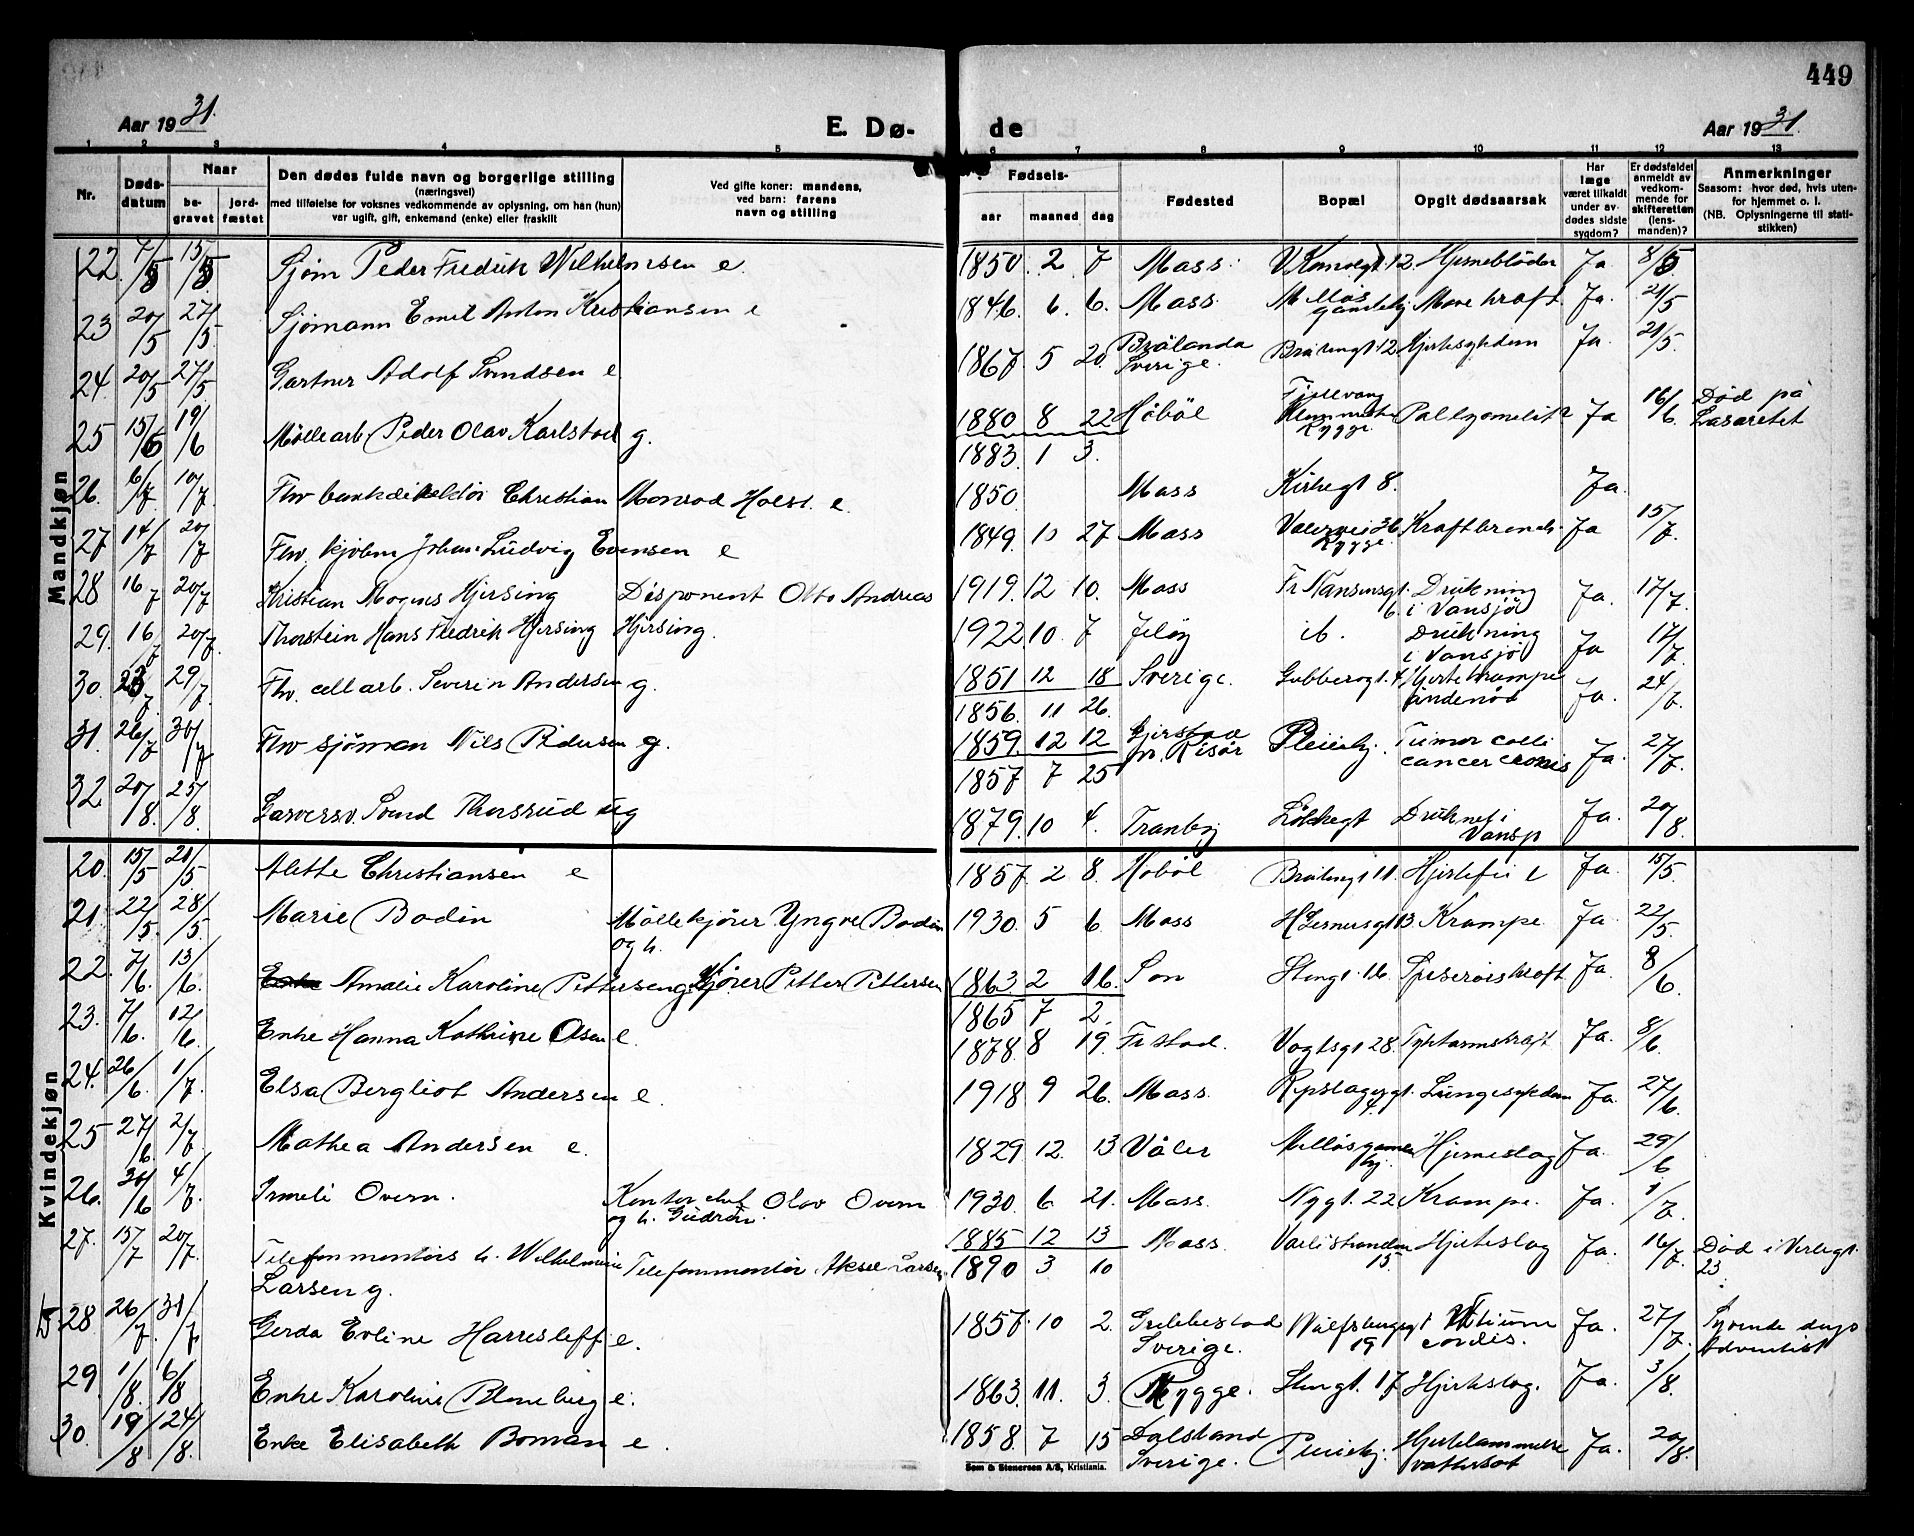 449
Aar 1931.
E. Dø-
de
Aar 1931.
1 2 3 4 5 6 7 8 9 10 11 12 13
Nr.
Døds-
datum
Naar
be-
gravet
jord-
fæstet
Den dødes fulde navn og borgerlige stilling
(næringsvei)
med tilføielse for voksnes vedkommende av oplysning, om han (hun)
var ugift, gift, enkemand (enke) eller fraskilt
Ved gifte koner: mandens,
ved barn: farens
navn og stilling
Fødsels-
aar maaned dag
Fødested
Bopæl
Opgit dødsaarsak
Har
læge
været tilkaldt
under av-
dødes sidste
sygdom?
Er dødsfaldet
anmeldt av
vedkom-
mende for
skifteretten
(lens-
manden)?
Anmerkninger
Saasom: hvor død, hvis uten-
for hjemmet o. l.
(NB. Oplysningerne til stati-
stikken)
Mandkjøn
22. 7/5 15/5 Sjøm Peder Fredrik Wilhelmsen e. 1850. 2 7 Moss. 12 Hjerneblöder Ja 8/5
23 20/5 27/5. Sjømann Emil Anton Kristiansen e 1846. 6. 6. Moss. Melløs gamleby More kraft. Ja. 21/5
24 20/5 27/5 Gartner Adolf Svendsen e 1867 5 20. Brålanda Sverige. Bråtengt 12 Hjertesykdom Ja 21/5.
25 15/6 19/6 Møllearb Peder Olav Karlstad g. 1880 8 22 Höböl Fjellvang Rygge. Ja 16/6. Død på Lasarettet
1883. 1 3.
26. 6/7 10/7. Fhv bankdirektör Christian Monrad Holst. e. 1850. Moss Kirkegt 8. Ja.
27 14/7 20/7 Fhv. kjøbm Johan Ludvig Evensen e 1849. 10 27 Moss Vålerveien 36 Rygge. Kraftbrends. Ja 15/7.
28 16/7 20/7 Kristian Mogens Hjersing Disponent Otto Andreas 1919. 12 10. Moss Fr Nansensgt. 6. Drukning i Vansjö Ja. 17/7.
29. 16/7 20/7. Thorstein Hans Fredrik Hjersing Hjersing. 1922. 10. 7 Jelöy ib. Drukning i Vansjö Ja 17/7.
30. 23/7 29/7. Fhv. cellarb. Severin Andersen g. 1851 12 18 Sverige. Gubberogt. 4 Hjertekrampe åndenöd Ja. 24/7.
1856. 11 26.
31. 26/7 30/7 Fhv sjöman Nils Pedersen g. 1859. 12 12 Gjerstad pr. Risör Pleiehj. Tumor colli cancer Ja. 27/7.
1857 7 25
32 20/8. 25/8. Garversv. Svend Thorsrud ug 1879. 10 4. Tranby Lökkegt Druknet i Vansjø Ja. 20/8.
Kvindekjøn
20. 15/5 21/5 Alette Christiansen e 1857. 2 8. Höböl Bråtengt 11. Hjertefeil Ja. 15/5.
21. 22/5. 28/5. Marie Bodin Möllekjører Yngve Bodin og h. 1930. 5 6 Moss H Gernersgt 13 Krampe. Ja 22/5.
22. 7/6. 13/6. Amalie Karoline Pettersen g. Kjörer Petter Pettersen 1863. 2 16. Son Stengt. 16 Spiserörskraft Ja. 8/6.
1865 7 2.
23. 7/6. 12/6. Enke Hanna Kathrine Olsen e. 1878. 8 19. Fr.stad. Vogtsgt 28. Tyktarmskraft Ja. 8/6.
24. 26/6 1/7. Elsa Bergliot Andersen e. 1918 9 26. Moss. Repslagergt. 4. Lungesykdom Ja. 27/6.
25 27/6 2/7 Mathea Andersen e. 1829 12. 13 Våler Melløs gamleby. Hjerneslag Ja. 29/6
26. 30/6 4/7. Irmeli Overn. Kontor Olav Overn og h. Gudrun. 1930. 6 21. Moss. Nygt. 22 Krampe. Ja. 1/7.
27. 15/7 20/7. Telefonmontørs h. Wilhelmine Larsen g. Telefonmontör Aksel Larsen 1885 12 13 Moss. Værlestranden 15. Hjerteslag Ja. 16/7. Død i Verlegt. 23
1890 3 10
D 28 26/7 31/7 Gerda Evline Harrisleff e. 1857. 10 2. Grebbestad Sverige. Wulfsbergsgt 19 Vitium cordis. Ja. 27/7. Syvende dags Adventist
29. 1/8. 6/8 Enke Karoline Blomberg e. 1863. 11. 3. Rygge. Stengt. 17 Hjerteslag. Ja. 3/8.
30. 19/8 24/8. Enke Elisabeth Boman e. 1858. 7 15 Dalsland Sverige. Pleiehj. Hjertelammelse vattersot Ja. 20/8.
Sem & Stenersen A/S, Kristiania.